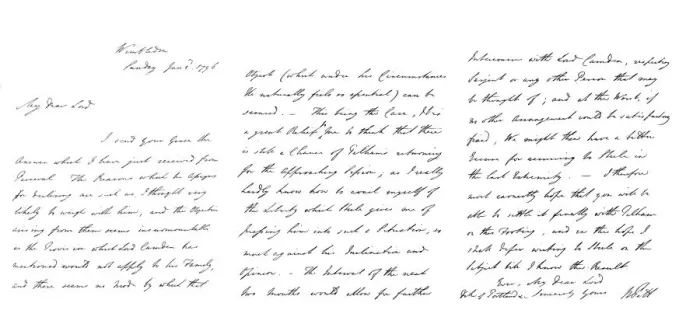 Wimbledon
Sunday Jany. 1796
My Dear Lord
I send your Grace the
Answer which I have just received from
Percival The Reasons which he assigns
for declining are such as I thought very
likely to weigh with him, and the Objection
arising from them seems insurmountable
as the Provision which Lord Camden has
mentioned would not apply to his Family,
and there seems no Mode by which that
Object (which under his Circumstances
He naturally feels so essential) can be
secured. — This being the Case, It is
a great Relief to me to think that there
is still a Chance of Pelham's returning
for the approaching Session; as I really
hardly know how to avail myself of
the Liberty which Steele gives me of
pressing him into such a Situation, so
much against his Inclination and
Opinion. — The Interval of the next
two months would allow for further
Intercourse with Lord Camden, respecting
Serjent or any other Person that may
be thought of; and at the Worst, if
no other Arrangement could be satisfactory
fixed, We might then have a better
Excuse for recurring to Steele in
the last Extremity. — I therefore
most earnestly hope that you will be
able to settle it finally with Pelham
on this Footing, and in the hope I
shall defer writing to Steele on the
Subject till I know the Result
Ever, My Dear Lord
Sincerely Yours
W Pitt
D. of Portland